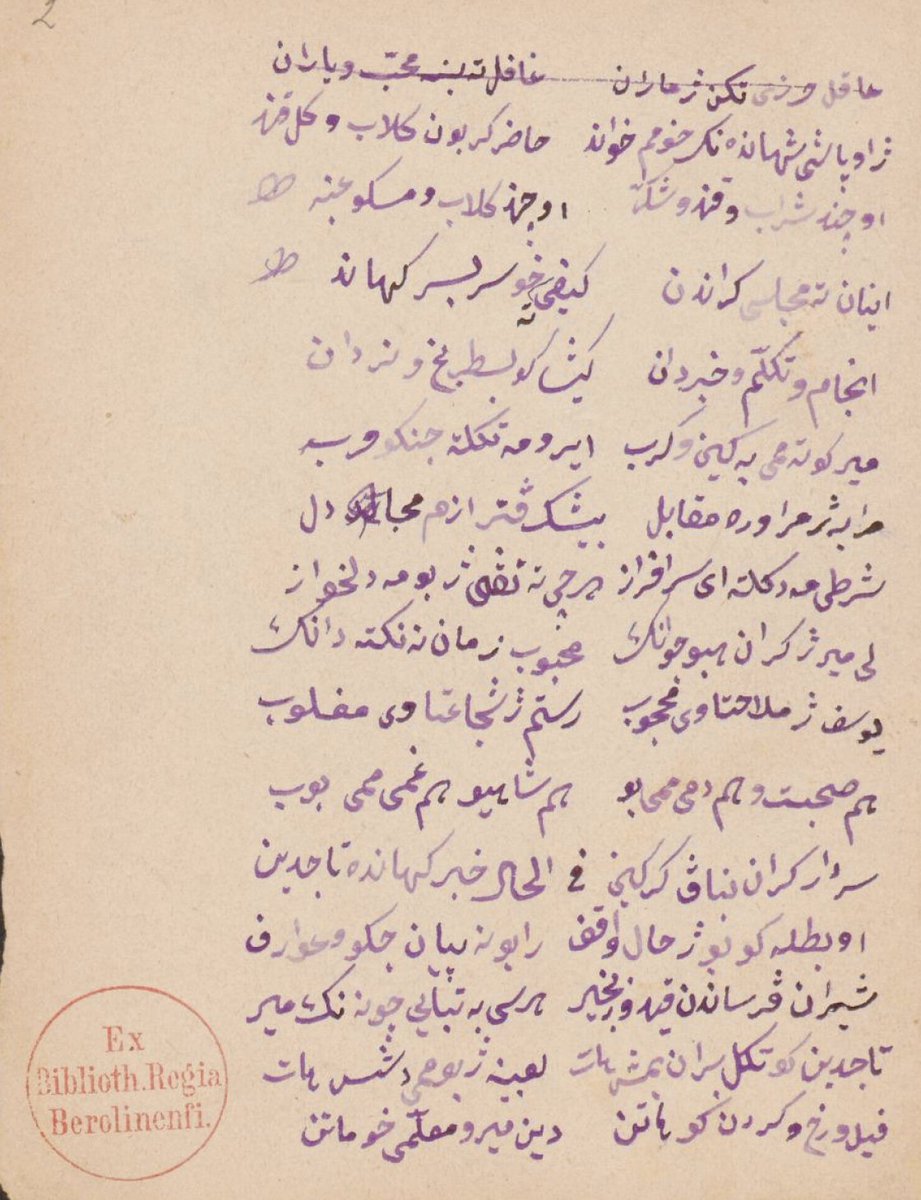 2
عاقل وزی نکن ژ ماران غافل نه بنه محبّ و یاران
ژاو پاشی شهانده نک خوهم خواند حاضر کربون کلاب و کل قند
او چند شراب و قند و شکر او چند کلاب و مسکو عنبه
اینان ته مجلسی کراندن کیفی خو سربسر کهاند
انجام و تکلّم و خبردان کیشا کو بسطرنج و نردان
میر کوته می به کین و کرب ایرو مه تکلته جنکو و رب
رابه ژ مرا وره مقابل بیشک ڤترازم مجا دل
شرطی مه دکلته ای سرافراز هرچی ته ڤی ژ بو مه دلخواز
لی میر ژ کران هبو جوانک محبوب زمان نه نکته دانک
یوسف ژ ملاحتاوی محجوب رستم ژ شجاعتاوی مغلوب
هم صحبت و هم دمی ممی بو هم شاهیو هم غمی ممی بوب
سردار کران بناڤ کرکین فی الحال خبر کهانده تاجدین
اوبطله کو بو ژ حال واقف رابو نه بیان چکو و عوارف
شیران ڤرساندن قید و زنجیر هرسی به تبایی چونه نک میر
تاجدین کو تکل بران بمش هات لعبینه ژبو ممی دشس هات
فیل و رخ و کردن کو هاتن دین میر و معلّمی خو ماتن
Ex
Biblioth. Regia
Berolinensi.